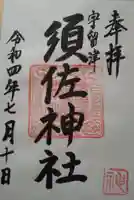 奉拝
宇留津
須佐神社
令和四年七月十日